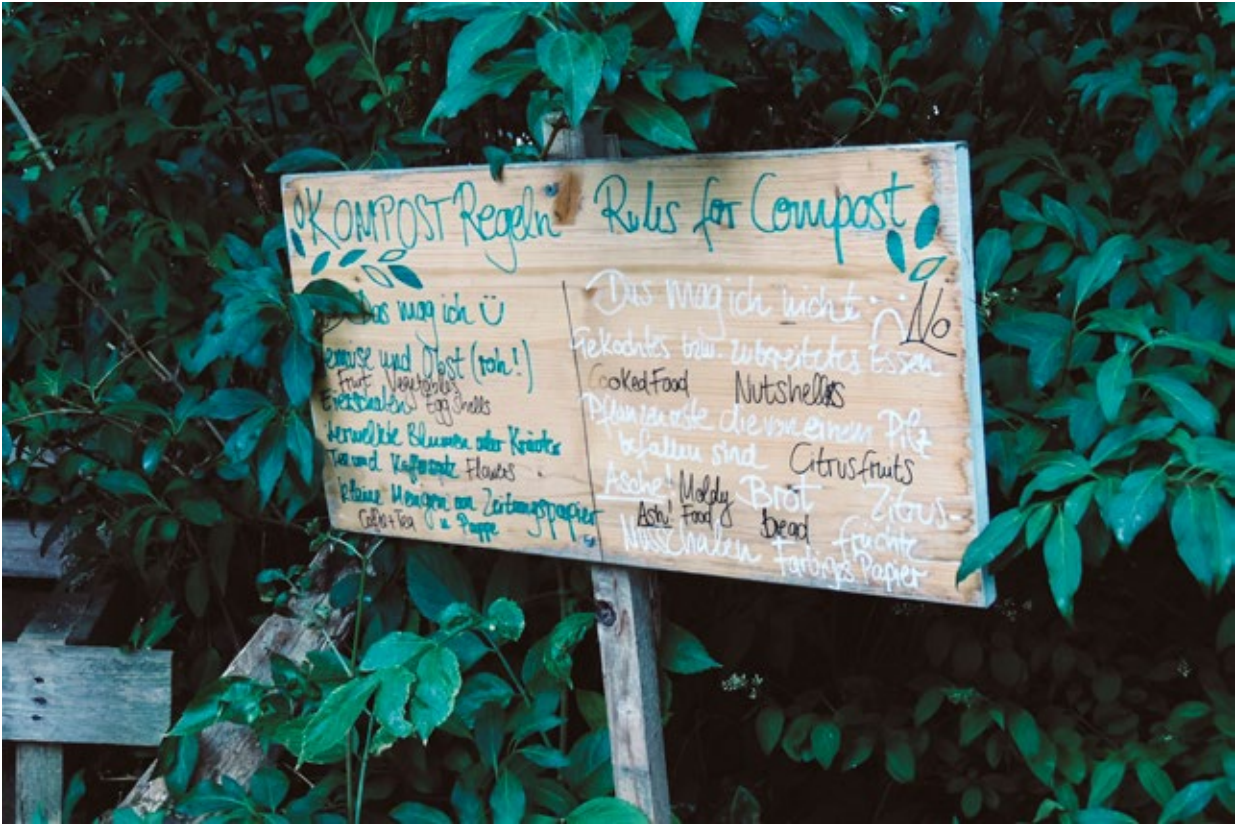 KOMPOST Regeln Rules for Compost
Das mag ich Ü
Gemüse und Obst (roh!)
Fruit Vegetables
Eierschalen Egg Shells
Verwelkte Blumen oder Kräuter
Tee und Kaffeesatz Flowers
kleine Mengen an Zeitungspapier
Coffee+Tea u Pappe
Das mag ich nicht No
Gekochtes bzw. zubereitetes Essen
Cooked Food Nutshells
Pflanzenreste die von einem Pilz
befallen sind Citrusfruits
Asche! Moldy Brot Zitrus-
Ash! Food bread früchte
Nussschalen Farbiges Papier